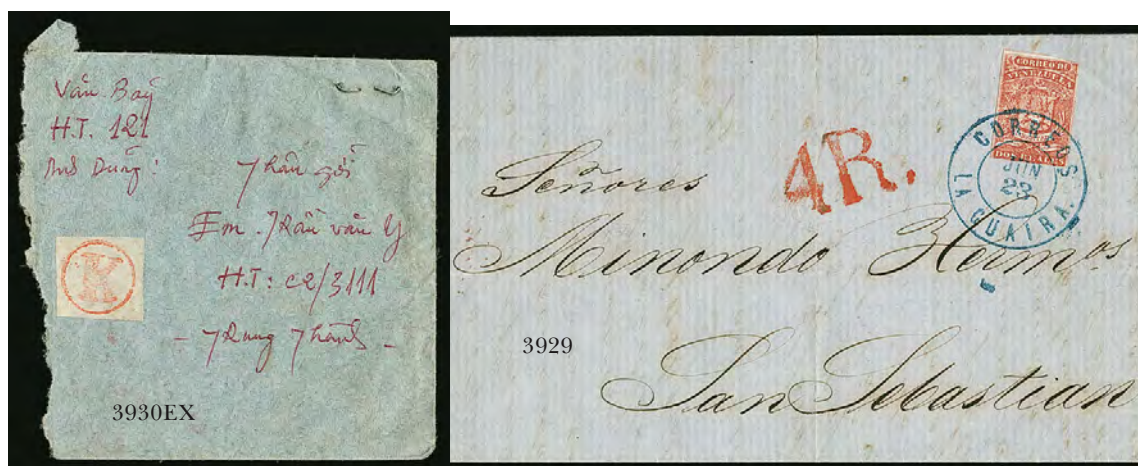 Văn Bảy
H.T. 121
Anh Dũng:
Thân gởi
Em. Trần văn Y
H.T: C2/3111
- Trung Thành -
K
3930EX
CORREO DE
VENEZUELA
DOS REALES
CORREOS
JUN
23
LA GUAIRA.
4R.
Señores
Minondo Hermos
San Sebastian
3929